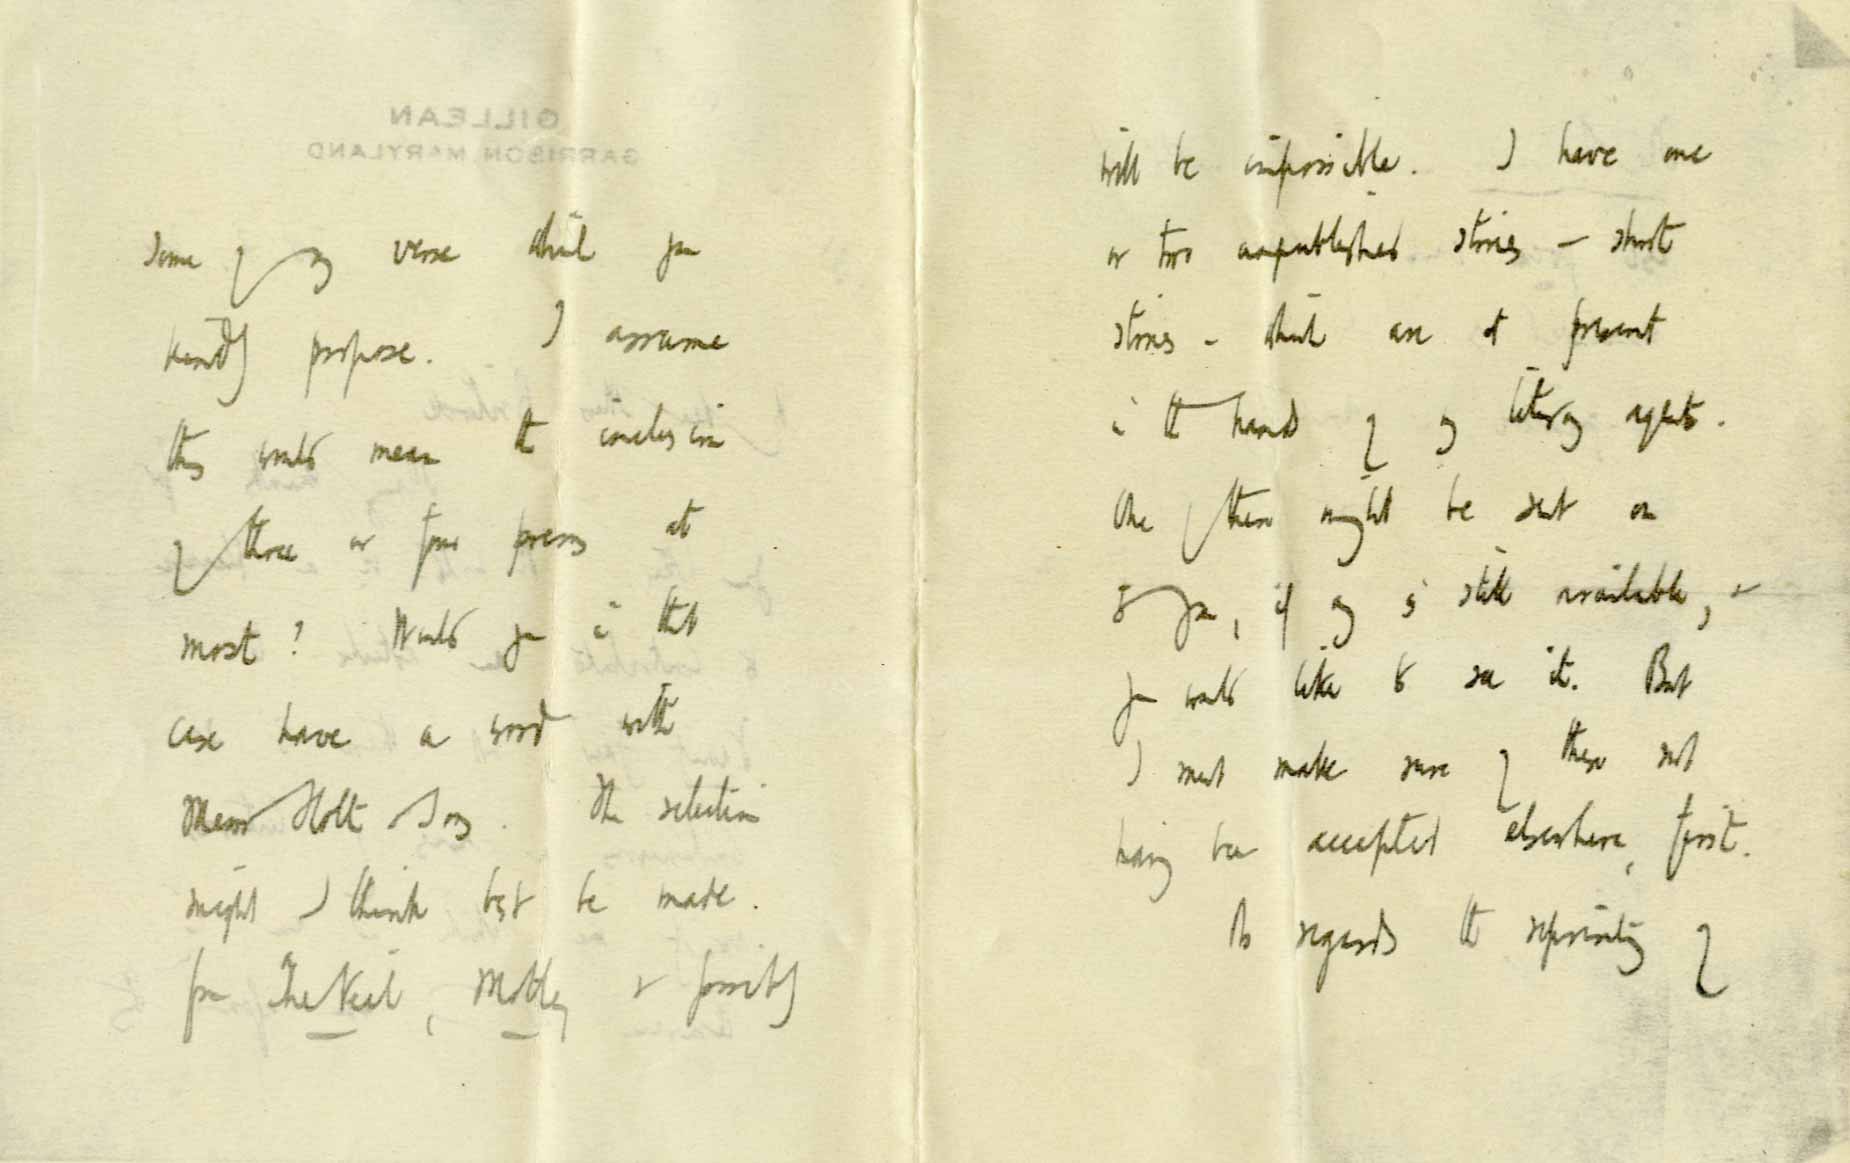 GILLEAN
GARRISON, MARYLAND
some of my verse which you
kindly propose. I assume
this would mean the inclusion
of three or four poems at
most? Would you in that
case have a word with
Messrs Holt & Sons. The selection
might I think best be made.
from The Veil, Motley & possibly
will be impossible. I have one
or two unpublished stories – short
stories - which are at present
in the hands of my literary agents.
One of them might be sent on
to you, if any is still available, &
you would like to see it. But
I must make sure of them not
having been accepted elsewhere, first.
As regards the reprinting of